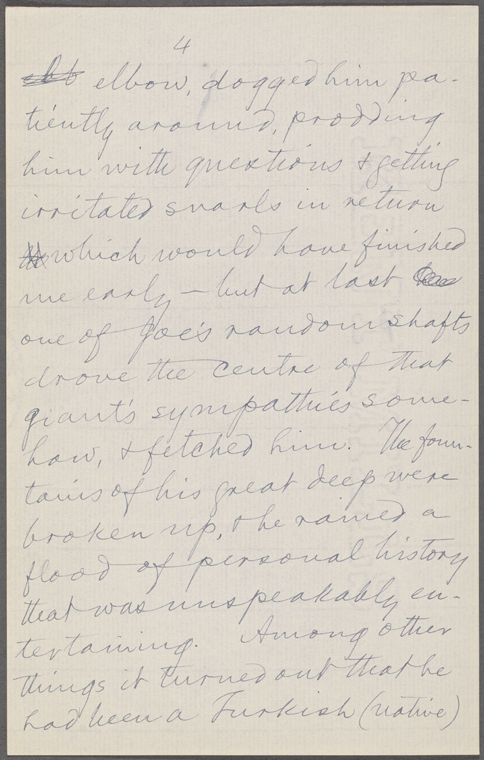 4
elbow, dogged him pa-
tiently around, prodding
him with questions & getting
irritated snarls in return
which would have finished
me early – but at last
one of Joe's random shafts
drove the centre of that
giant's sympathies some-
how, & fetched him. The foun-
tains of his great deep were
broken up, & he rained a
flood of personal history
that was unspeakably en-
tertaining. Among other
things it turned out that he
had been a Turkish (native)